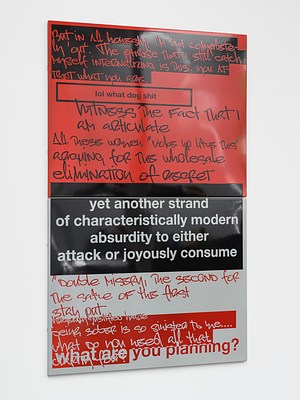 But in all honesty, I'm not completely
in out. The phrase that I still catch
myself internalizing is this. You are
just what you are
lol what dog shit
Witness the fact that I
am articulate
All these women
arguing for this wholesale
elimination of regret
yet another strand
of characteristically modern
absurdity to either
attack or joyously consume
"Double misery, the second for
the sake of the first
stay put
being sober is so sinister to me....
what do you need all that
what are you planning?